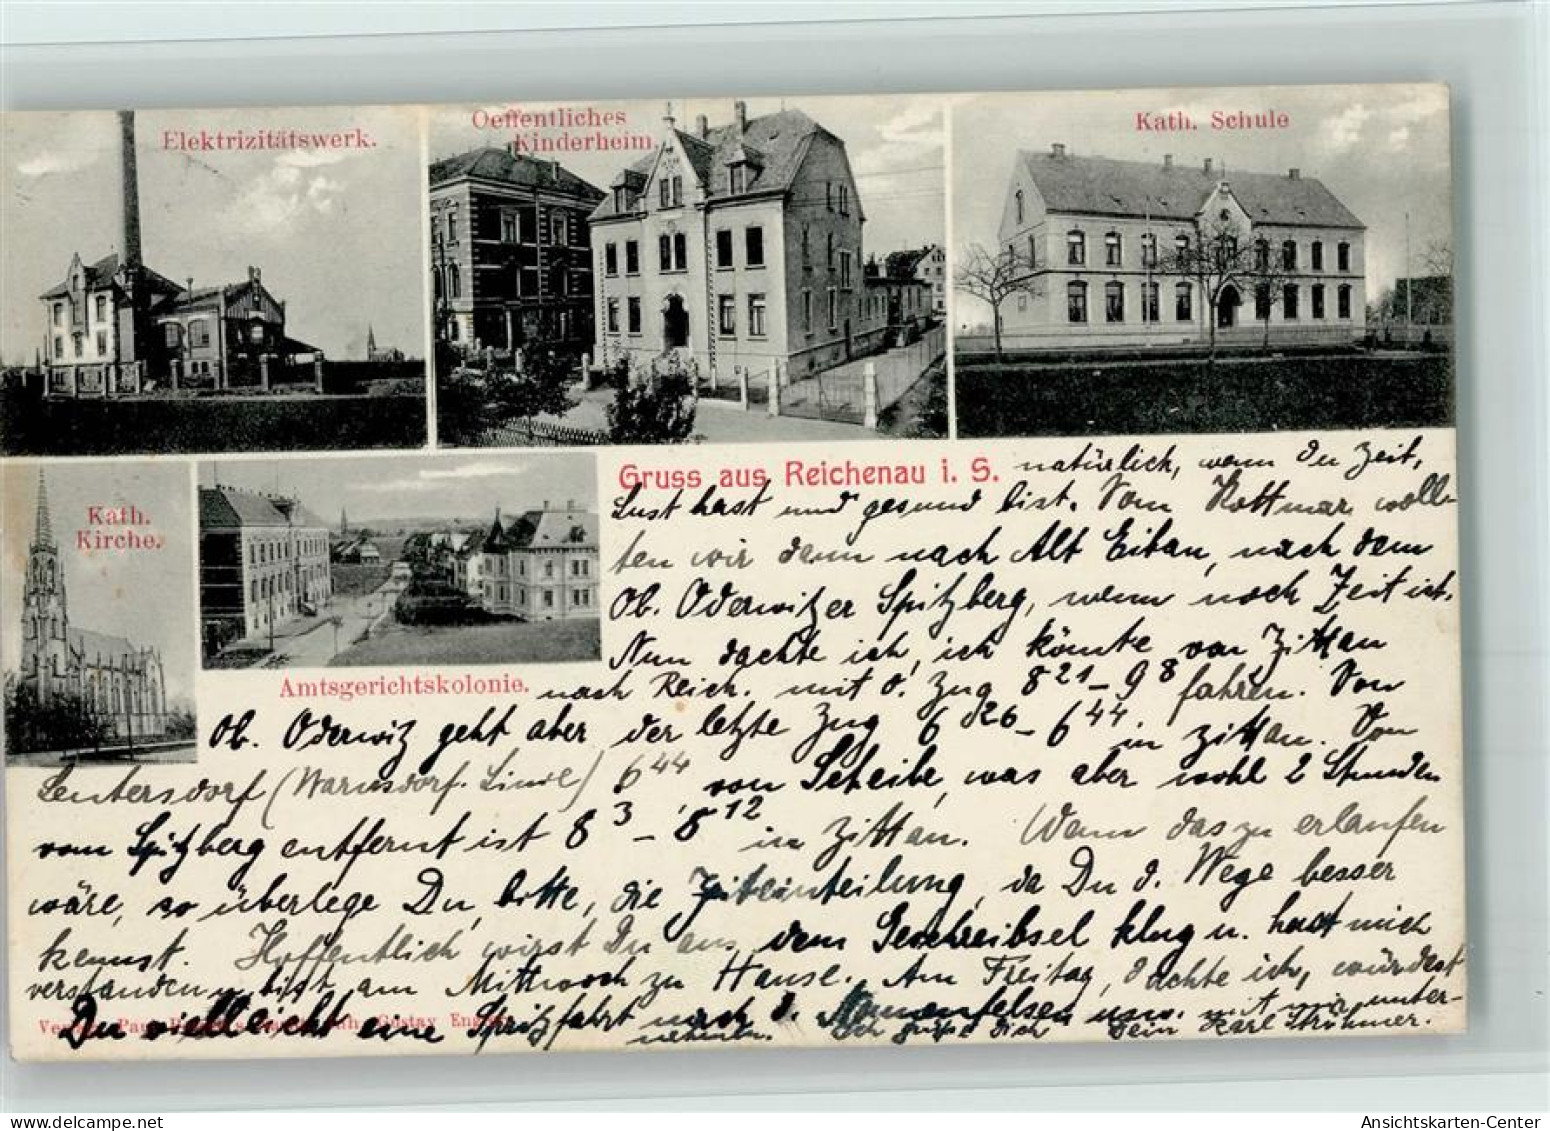 Elektrizitätswerk.
Oeffentliches
Kinderheim.
Kath. Schule
Kath.
Kirche.
Amtsgerichtskolonie.
Gruss aus Reichenau i. S.
natürlich, wenn Du Zeit,
Lust hast und gesund bist. Vom Kottmar woll-
ten wir dann nach Alt Eibau, nach dem
Ob. Oderwitzer Spitzberg, wenn noch Zeit ist.
Nun dachte ich, ich könnte von Zittau
nach Reich. mit d. Zug 8 21 – 9 8 fahren. Von
Ob. Oderwitz geht aber der letzte Zug 6 26 – 6 44 in Zittau. Von
Leutersdorf (Warnsdorf. Linie) 6 44 von Scheibe, was aber wohl 2 Stunden
vom Spitzberg entfernt ist 8 3 – 8 12 in Zittau. Wenn das zu erlaufen
wäre, so überlege Du, bitte, die Zeiteinteilung, da Du d. Wege besser
kennst. Hoffentlich wirst Du aus dem Geschreibsel klug u. hast mich
verstanden u. bist am Mittwoch zu Hause. Am Freitag, dachte ich, würdest
Du vielleicht eine Spritzfahrt nach d. Nonnenfelsen usw. mit mir unter-
nehmen. Es grüßt Dich Dein Karl Ströhmer.
Verlag: Gustav
Ansichtskarten-Center